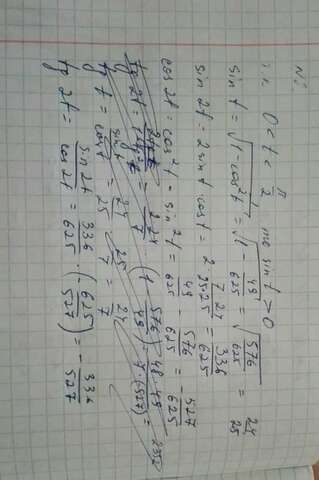 т.к. 0 < t < π/2 то sin t > 0
sin t = √(1 - cos² t) = √(1 - 49/625) = √(576/625) = 24/25
sin 2t = 2 sin t cos t = 2 · 7/25 · 24/25 = 336/625
cos 2t = cos² t - sin² t = 49/625 - 576/625 = - 527/625
tg t = sin t / cos t = 24/25 · 25/7 = 24/7
tg 2t = sin 2t / cos 2t = 336/625 · (- 625/527) = - 336/527